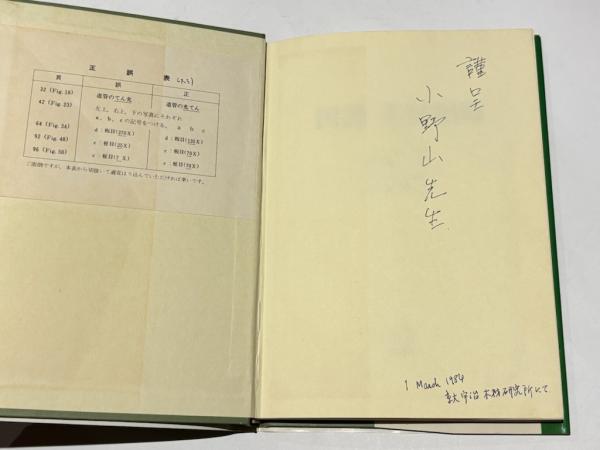 正 誤 表
頁 誤 正
32 (Fig.18) 道管のてん充 道管の充てん
42 (Fig.23) 左上，右上，下の写真にそれぞれ
a，b，cの記号をつける。 a b c
64 (Fig.34) d：板目(270X) d：板目(130X)
92 (Fig.48) c：板目(25X) c：板目(70X)
96 (Fig.50) c：板目(7 X) c：板目(70X)
ご面倒ですが，本表から切抜いて適宜はり込んでいただければ幸いです。
謹呈
小野山先生
1 March 1984
京大宇治 木材研究所にて